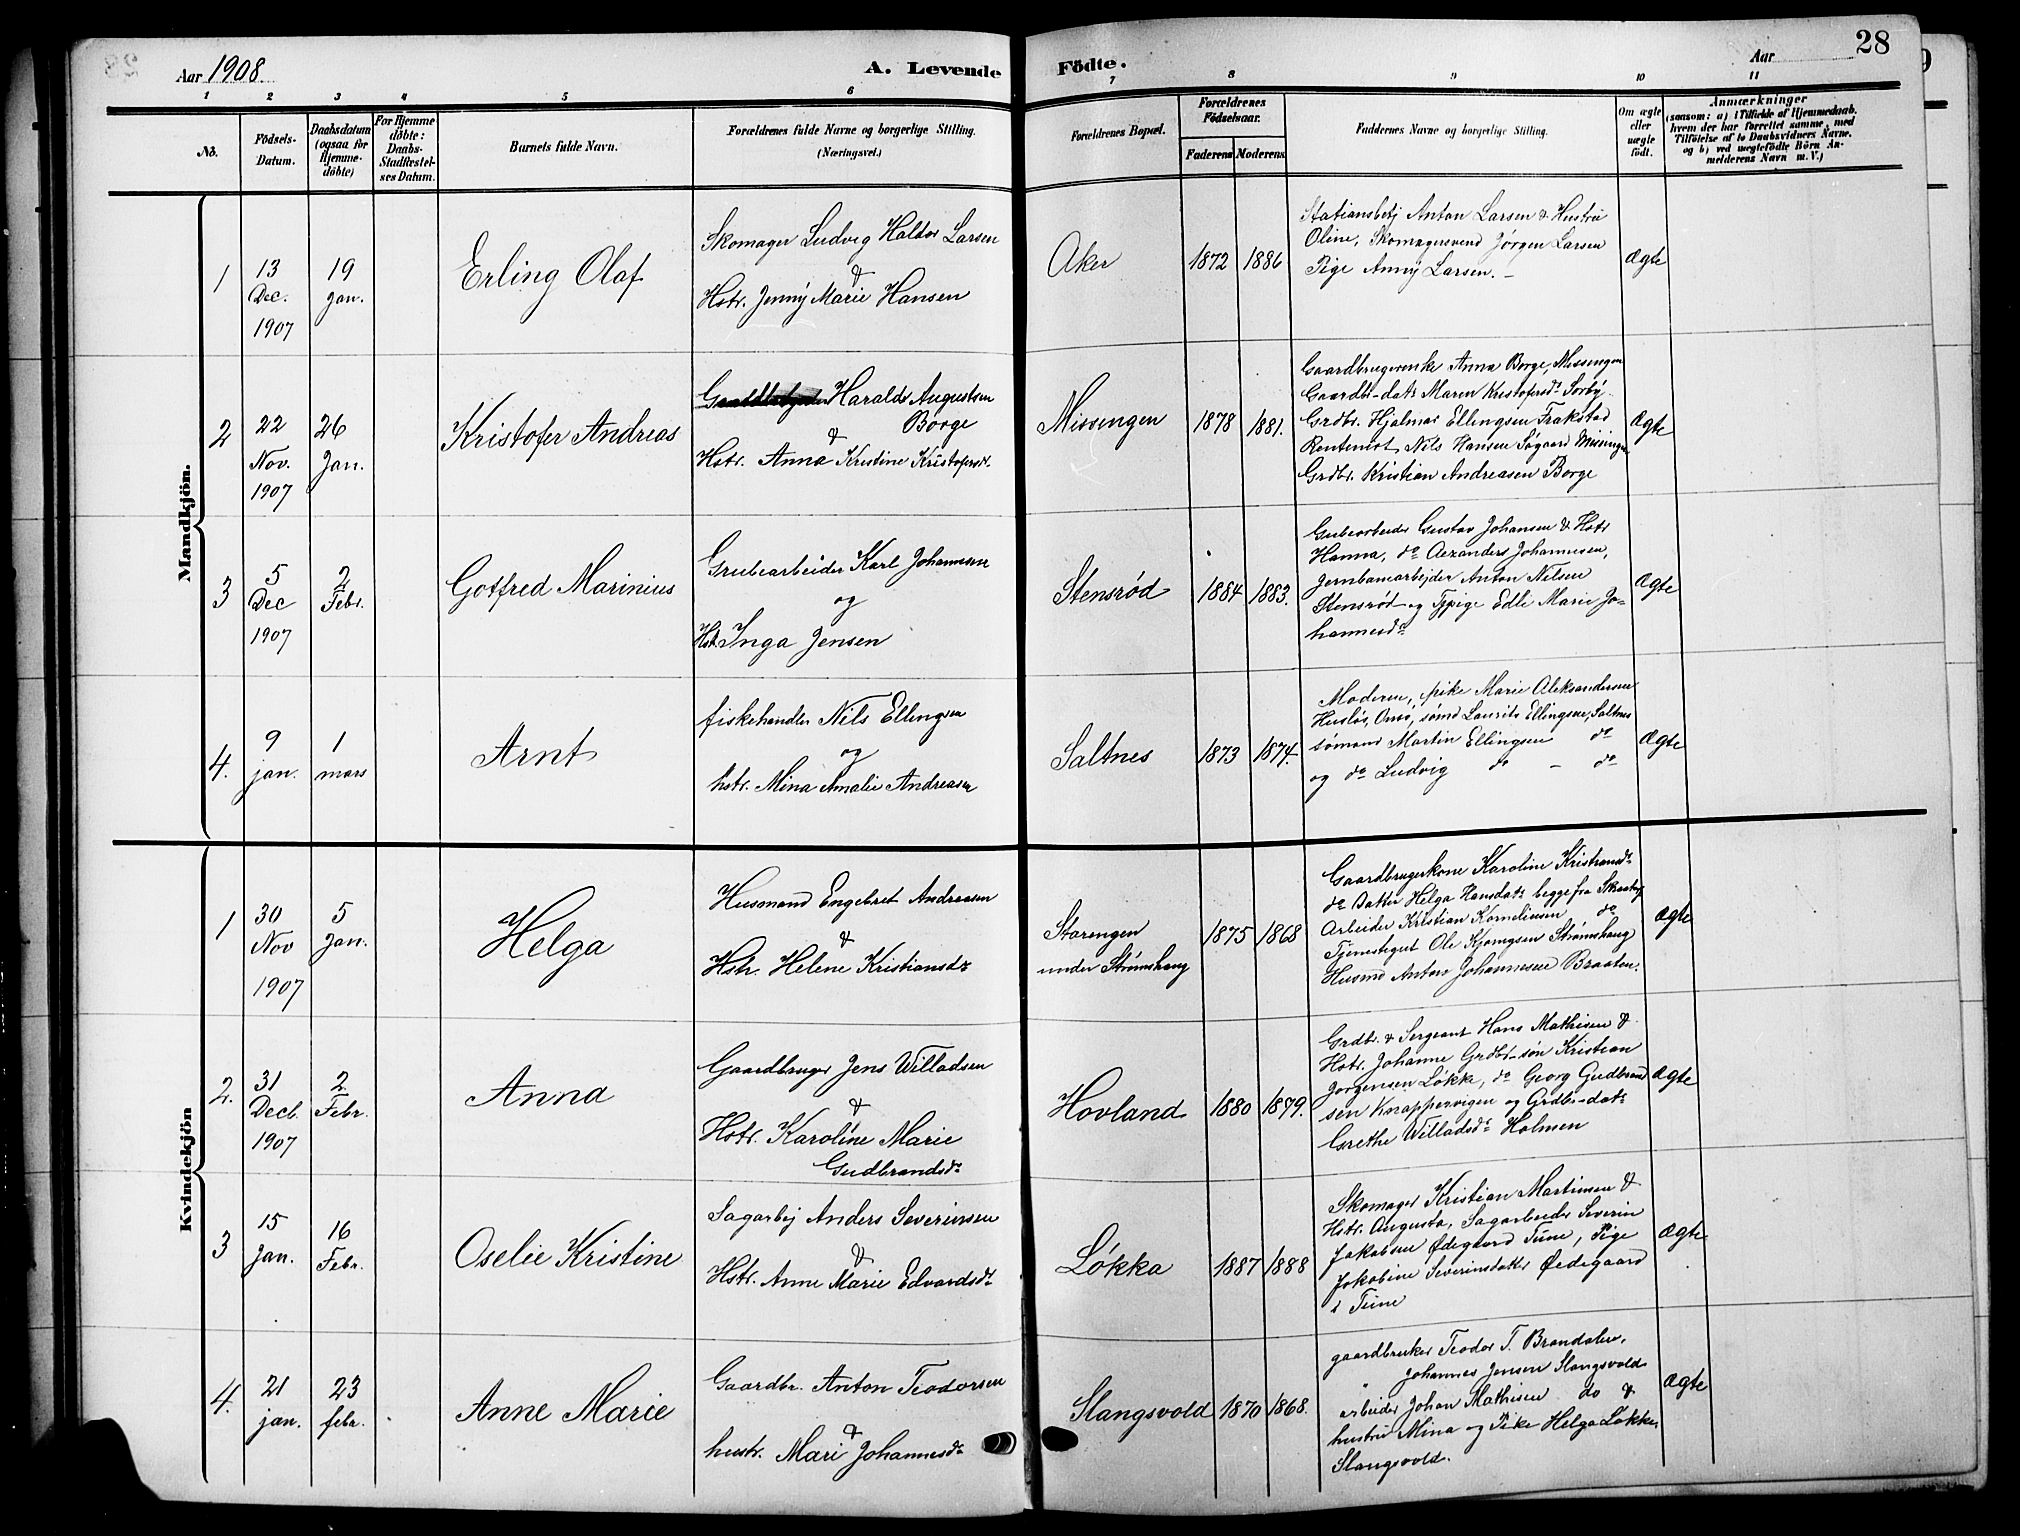 28
Aar 1908.
A. Levende Födte.
Aar
1 2 3 4 5 6 7 8 9 10 11
No.
Födsels-Datum.
Daabsdatum (ogsaa for Hjemmedöbte)
For Hjemmedöbte: Daabs-Stadfæstelses Datum.
Barnets fulde Navn.
Forældrenes fulde Navne og borgerlige Stilling. (Næringsvei.)
Forældrenes Bopæl.
Forældrenes Födselsaar.
Faderens Moderens
Faddernes Navne og borgerlige Stilling.
Om ægte eller uægte födt.
Anmærkninger
(saasom: a) i Tilfælde af Hjemmedaab, hvem der har forrettet samme, med Tilföielse af to Daabsvidners Navne, og b) ved uægtefödte Börn Anmelderens Navn m. V.)
Mandkjön.
1
13 Dec. 1907
19 Jan.
Erling Olaf
Skomager Ludvig Haldor Larsen
&
Hstr. Jenny Marie Hansen
Aker
1872 1886
Stationsbetj Anton Larsen & Hustru
Oline, Skomagersvend Jørgen Larsen
Pige Anny Larsen. –
Ægte
2
22 Nov. 1907
26 Jan.
Kristofer Andreas
Harald Augustsen
Borge
&
Hstr. Anna Kristine Kristofersdr.
Missengen
1878 1881.
Gaardbrugerenke Anna Borge, Missengen
Gaardbr-datr Maren Kristofersdr Sorby
Grdbr. Hjalmar Ellingsen Frakstad
Rentenist Nils Hansen Søgaard Missingen
Grdbr. Kristian Andreasen Borge
Ægte
3
5 Dec 1907
2 Febr.
Gotfred Marinius
Grubearbeider Karl Johannesen
og
Hst. Inga Jensen
Stensrød
1884 1883.
Grubearbeider Gustav Johansen & Hstr
Hanna, do Aexanders Johannesen,
Jernbanearbejder Anton Nilsen
Stensrød og Tjpige Edle Marie Jo=
hannesdr
Ægte
4.
9 jan.
1 mars
Arnt
fiskehandler Nils Ellingsen
og
hstr. Mina Amalie Andreasen
Saltnes
1873 1874.
Moderen, pike Marie Aleksandersen
Husløs, Onsø, sømd Laurits Ellingsen, Saltnes
sømand Martin Ellingsen do
og do Ludvig do – do
Ægte
Kvindekjön
1
30 Nov 1907
5 Jan.
Helga
Husmand Engebret Andreasen
&
Hstr. Helene Kristiansdr
Starengen
under Strømshaug
1875 1868
Gaardbrugerkone Karoline Kristiansdr
do Datter Helga Hansdatr begge fra
Arbeider Kristian Kornelinsen do
Tjenestegut Ole Strømshaug
Husmd Anton Johannesen Braaten.
Ægte
2.
31 Decb. 1907
2 Febr.
Anna
Gaardbruger Jens Willadsen
&
Hstr. Karoline Marie
Gudbrandsdr
Hovland
1880 1879.
Grdbr. & Sergeant Hans Mathisen &
Hstr. Johanne Grdbr-søn Kristian
Jørgensen Løkke, do Georg Gudbrand
sen Knappervigen og Grdbr-datr
Grethe Willadsdr Holmen
Ægte
3
15 Jan.
16 Febr.
Oselie Kristine
Sagarbej Anders Severinsen
&
Hstr. Anne Marie Edvardsdr
Løkka
1887 1888
Skomager Kristian Martinsen &
Hstr. Augusta, Sagarbeider Severin
Jakobsen Ødegaard Tune, Pige
Jokobine Severinsdatter Ødegaard
i Tune
Ægte
4.
21 jan.
23 febr.
Anne Marie
Gaardbr. Anton Teodorsen
&
hustr. Mari Johannesdr
Slangsvold
1870 1868.
gaardbruker Teodor T. Brandalen,
" Johannes Jensen Slangsvold
arbeider Johan Mathisen do &
hustru Mina og Pike Helga Løkke,
Slangsvold.
Ægte